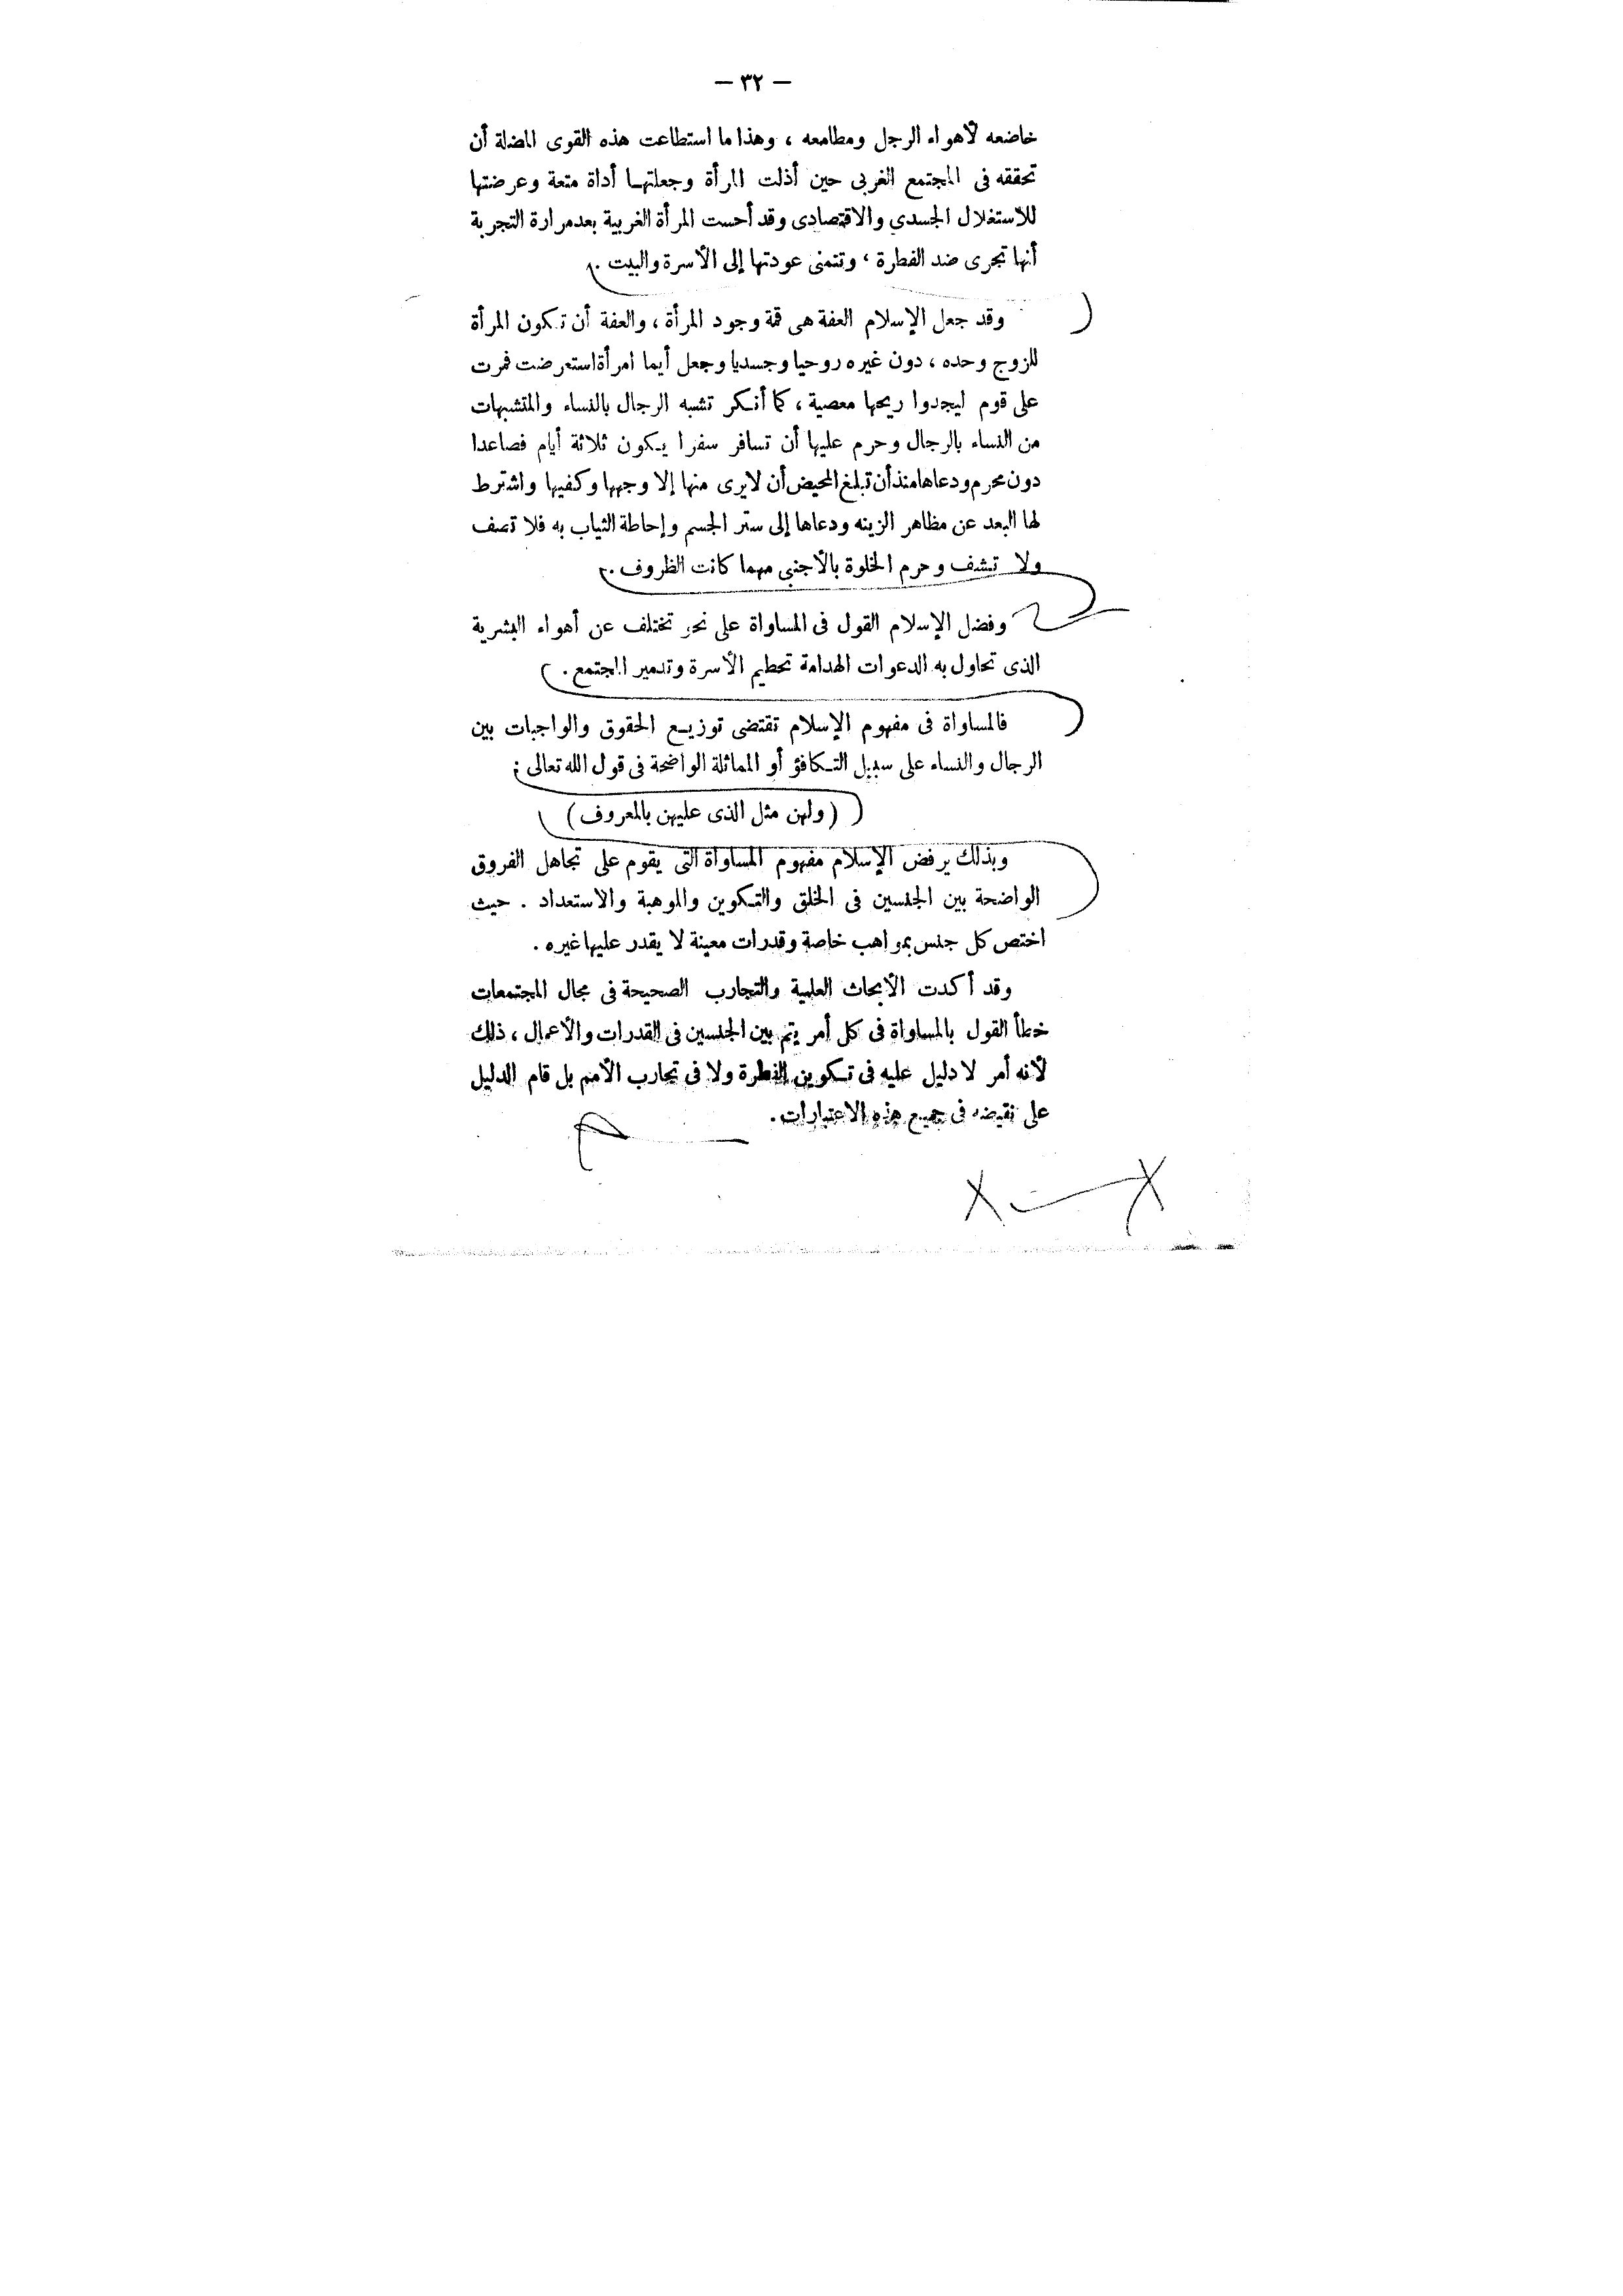 — ٣٢ —
خاضعه لأهواء الرجل ومطامعه ، وهذا ما استطاعت هذه القوى المضلة أن
تحققه فى المجتمع الغربى حين أذلت المرأة وجعلتها أداة متعة وعرضتها
للاستغلال الجسدى والاقتصادى وقد أحست المرأة الغربية بعد مرارة التجربة
أنها تجرى ضد الفطرة ، وتتمنى عودتها إلى الأسرة والبيت .
وقد جعل الإسلام العفة هى قمة وجود المرأة ، والعفة أن تكون المرأة
للزوج وحده ، دون غيره روحيا وجسديا وجعل أيما امرأة استعرضت فمرت
على قوم ليجدوا ريحها معصية ، كما أنكر تشبه الرجال بالنساء والمتشبهات
من النساء بالرجال وحرم عليها أن تسافر سفرا يكون ثلاثة أيام فصاعدا
دون محرم ودعاها منذ أن تبلغ المحيض أن لا يرى منها إلا وجهها وكفيها واشترط
لها البعد عن مظاهر الزينه ودعاها إلى ستر الجسم وإحاطة الثياب به فلا تصف
ولا تشف وحرم الخلوة بالأجنبى مهما كانت الظروف .
وفضل الإسلام القول فى المساواة على نحو تختلف عن أهواء البشرية
الذى تحاول به الدعوات الهدامة تحطيم الأسرة وتدمير المجتمع .
فالمساواة فى مفهوم الإسلام تقتضى توزيع الحقوق والواجبات بين
الرجال والنساء على سبيل التكافؤ أو المماثلة الواضحة فى قول الله تعالى :
( ولهن مثل الذى عليهن بالمعروف )
وبذلك يرفض الإسلام مفهوم المساواة التى يقوم على تجاهل الفروق
الواضحة بين الجنسين فى الخلق والتكوين والموهبة والاستعداد . حيث
اختص كل جنس بمواهب خاصة وقدرات معينة لا يقدر عليها غيره .
وقد أكدت الأبحاث العلمية والتجارب الصحيحة فى مجال المجتمعات
خطأ القول بالمساواة فى كل أمر يتم بين الجنسين فى القدرات والأعمال ، ذلك
لأنه أمر لا دليل عليه فى تكوين الفطرة ولا فى تجارب الأمم بل قام الدليل
على نقيضه فى جميع هذه الاعتبارات .